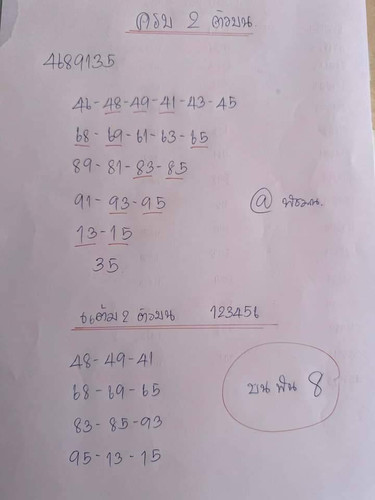 ครบ 2 ตัวบน
4689135
46-48-49-41-43-45
68-69-61-63-65
89-81-83-85
91-93-95
@
13-15
35
แต้ม 2 ตัวบน 123456
48-49-41
68-69-65
83-85-93
95-13-15
บน ฟัน 8